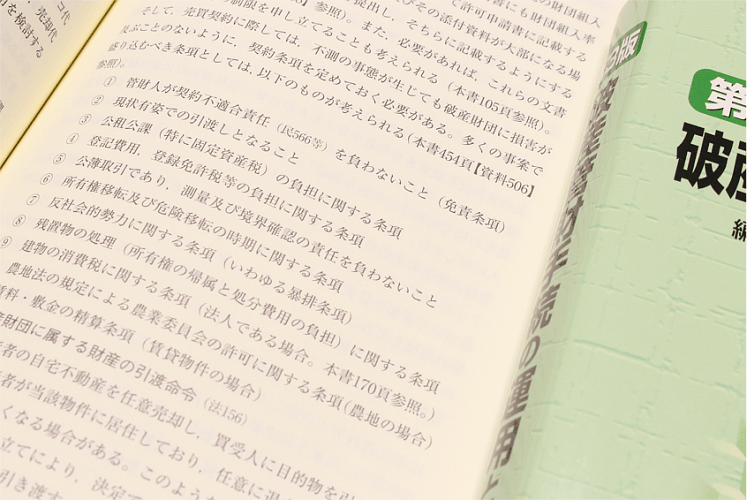 コ代
売却代
を検討する
の財団組入
書にも財団組入率
て許可申請書に記載する
提出し、そちらに記載するようにする
びその添付資料が大部になる場
参照）。また、必要があれば、これらの文書
制限を申し立てることも考えられる（本書105頁参照）。
そして、売買契約に際しては、不測の事態が生じても破産財団に損害が
及ぶことのないように、契約条項を定めておく必要がある。多くの事案で
盛り込むべき条項としては、以下のものが考えられる（本書454頁【資料506】
参照）。
① 管財人が契約不適合責任（民566等）を負わないこと（免責条項）
② 現状有姿での引渡しとなること
③ 公租公課（特に固定資産税）の負担に関する条項
④ 登記費用、登録免許税等の負担に関する条項
⑤ 公簿取引であり、測量及び境界確認の責任を負わないこと
⑥ 所有権移転及び危険移転の時期に関する条項
⑦ 反社会的勢力に関する条項（いわゆる暴排条項）
⑧ 残置物の処理（所有権の帰属と処分費用の負担）に関する条項
⑨ 建物の消費税に関する条項（法人である場合。本書170頁参照。）
農地法の規定による農業委員会の許可に関する条項（農地の場合）
賃料・敷金の精算条項（賃貸物件の場合）
財団に属する財産の引渡命令（法156）
者の自宅不動産を任意売却し、買受人に目的物を引
者が当該物件に居住しており、任意に退
くなる場合がある。このような
立てにより、決定で
引き渡す
版
破産管財手続の運用と
第
破産
編